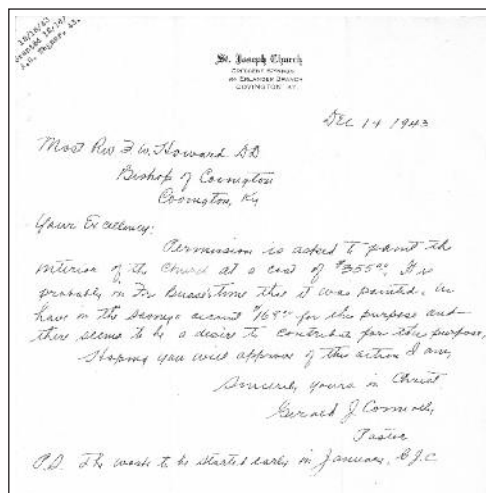 12/18/43
Granted
St. Joseph Church
Crescent Springs
Erlanger Branch
Covington, Ky.
Dec 14 1943
Most Rev F. W. Howard DD
Bishop of Covington
Covington, Ky
Your Excellency:
Permission is asked to paint the
interior of the church at a cost of $355.00. It is
probably in Fr time that it was painted. We
have in the savings account for the purpose and
there seems to be a desire to contribute for this purpose,
Hoping you will approve of this action I am,
Sincerely yours in Christ
Gerald J
Pastor
P.S. The work to be started early in January. G.J.C